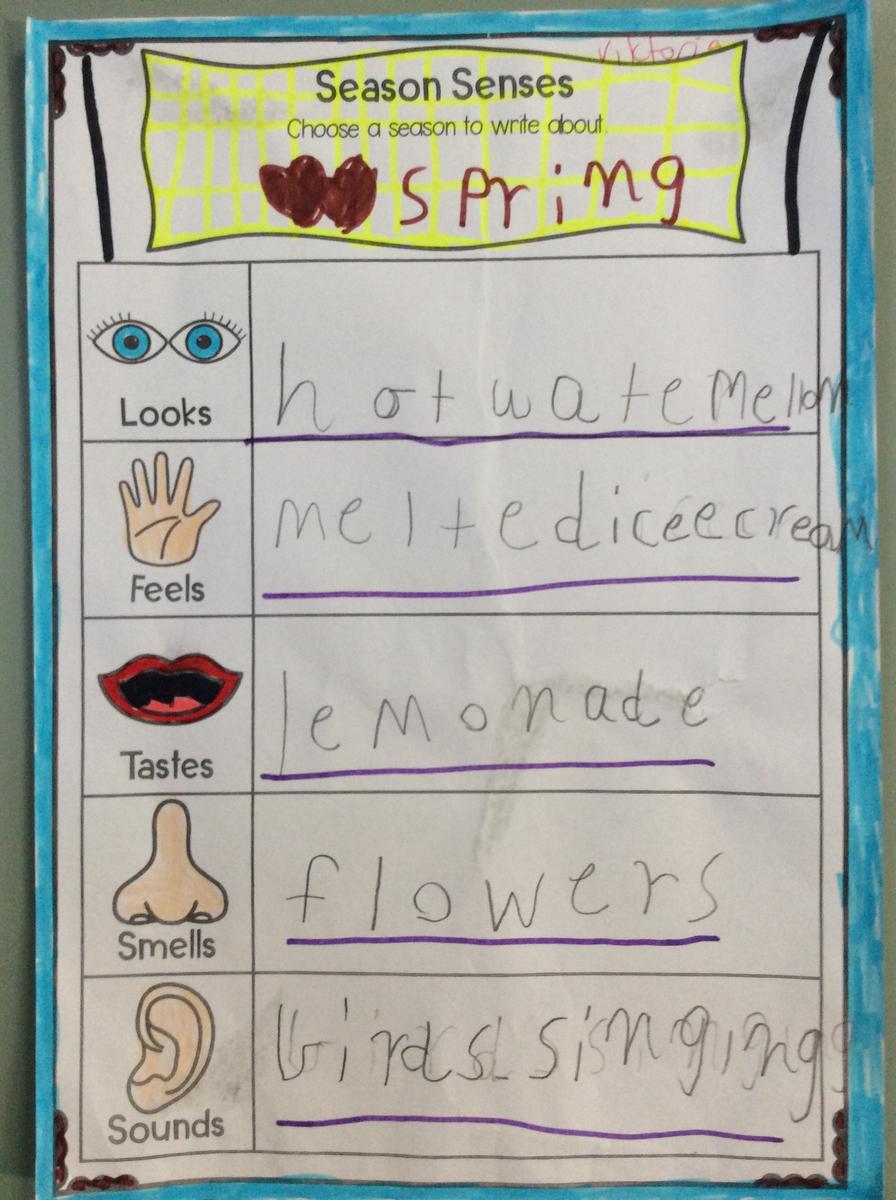 viktoria
Season Senses
Choose a season to write about.
spring
Looks
hot watemellon
Feels
melted iceecream
Tastes
lemonade
Smells
flowers
Sounds
birds singing